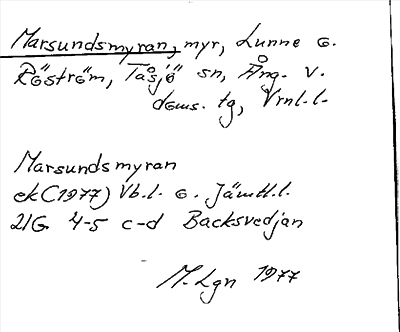 Marsundsmyran, myr, Lunne o.
Röström, Tåsjö sn, Ång. v.
doms. tg, Vrnl.l.
Marsundsmyran
ek (1977) Vb.l. o. Jämtl.l.
21G 4-5 c-d Backsvedjan
M. Lgn 1977